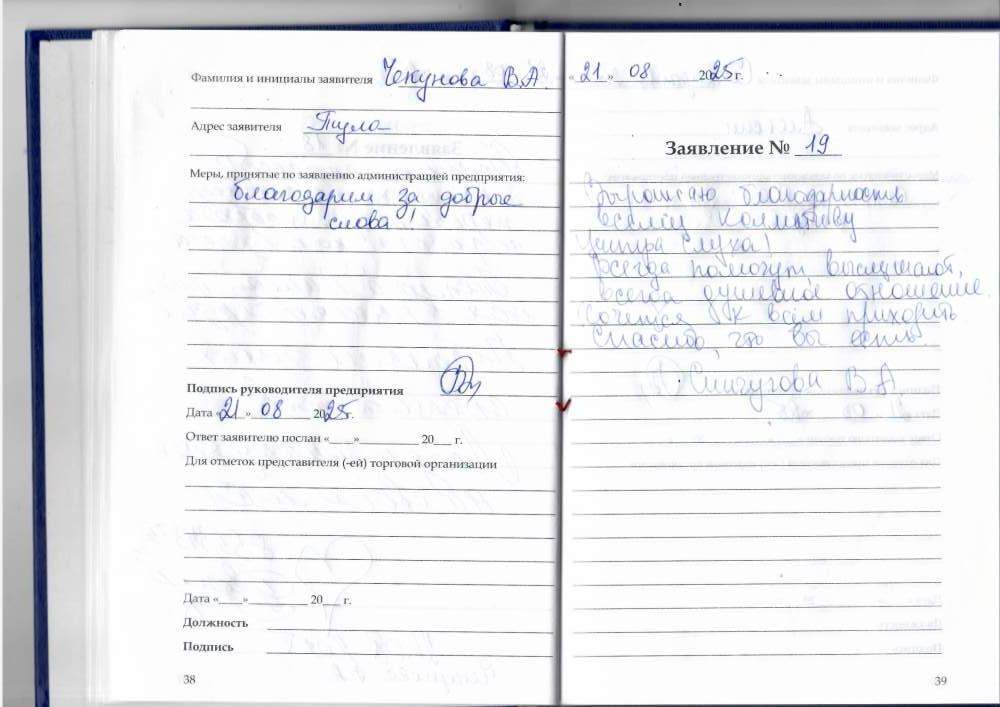 Фамилия и инициалы заявителя Чекунова В.А.
Адрес заявителя Тула
Меры, принятые по заявлению администрацией предприятия:
благодарим за добрые
слова!
Подпись руководителя предприятия
Дата «21» 08 2025г.
Ответ заявителю послан «___»__________ 20___ г.
Для отметок представителя (-ей) торговой организации
Дата «____»__________ 20___ г.
Должность
Подпись
38
«21» 08 2025г.
Заявление № 19
Выражаю благодарность
всему коллективу
Центра слуха!
Всегда помогут, выслушают,
всегда душевное отношение.
Хочется к вам приходить
Спасибо, что вы есть.
В.А
39